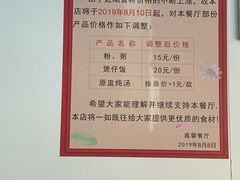 由于近期食材价格的不断上涨，故本
店将于2019年8月10日起，对本餐厅部份
产品价格作如下调整：
产品名称 调整后价格
粉、粥 15元/份
煲仔饭 20元/份
原盅炖汤 按原价+1元/款
希望大家能理解并继续支持本餐厅，
本店将一如既往给大家提供更优质的食材！
鑫馨餐厅
2019年8月8日